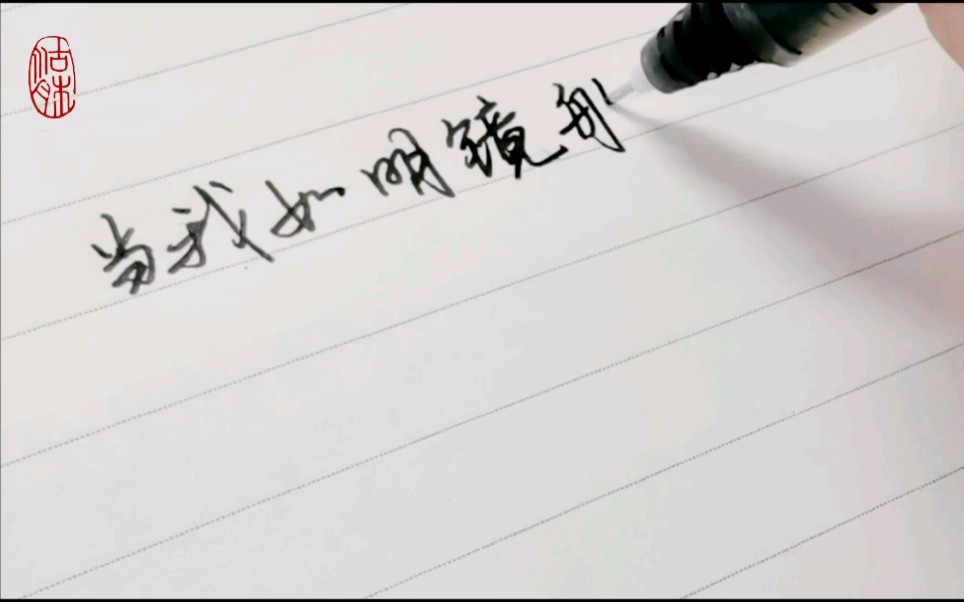 当我如明镜